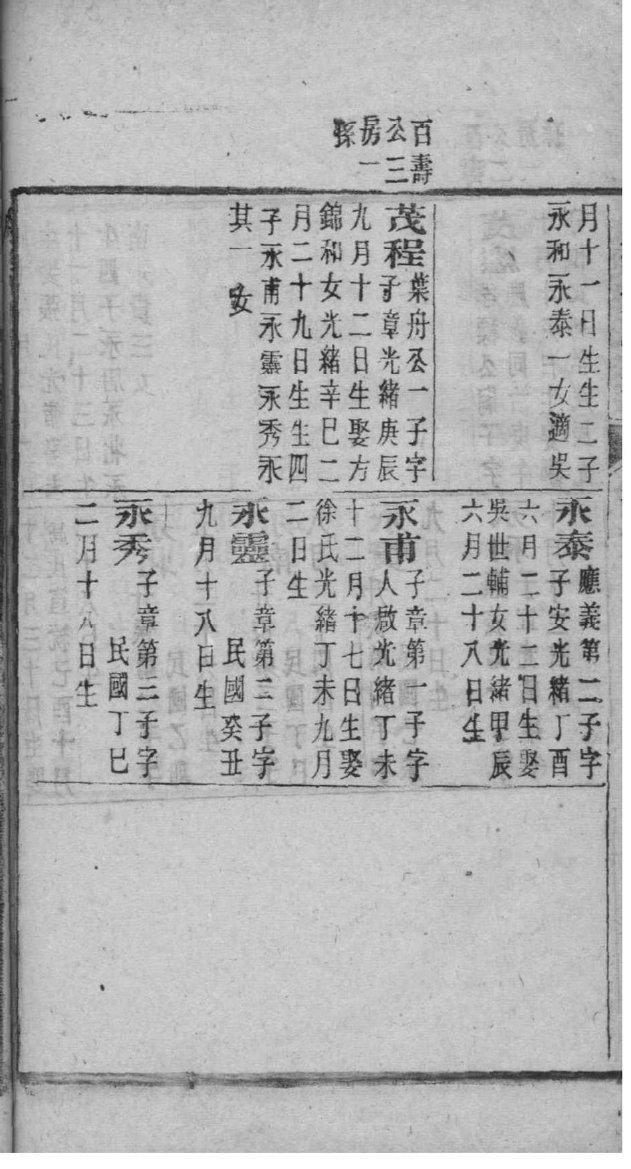 百壽
公三
房一
孫
月十一日生生二子
永和永泰一女適吳
茂程葉舟公一子字
子章光緒庚辰
九月十二日生娶方
錦和女光緒辛巳二
月二十九日生生四
子永甫永靈永秀永
其一女
永泰應義第二子字
子安光緒丁酉
六月二十二日生娶
吳世輔女光緒甲辰
六月二十八日生
永甫子章第一子字
人啟光緒丁未
十二月十七日生娶
徐氏光緒丁未九月
二日生
永靈子章第二子字
民國癸丑
九月十八日生
永秀子章第三子字
民國丁巳
二月十八日生